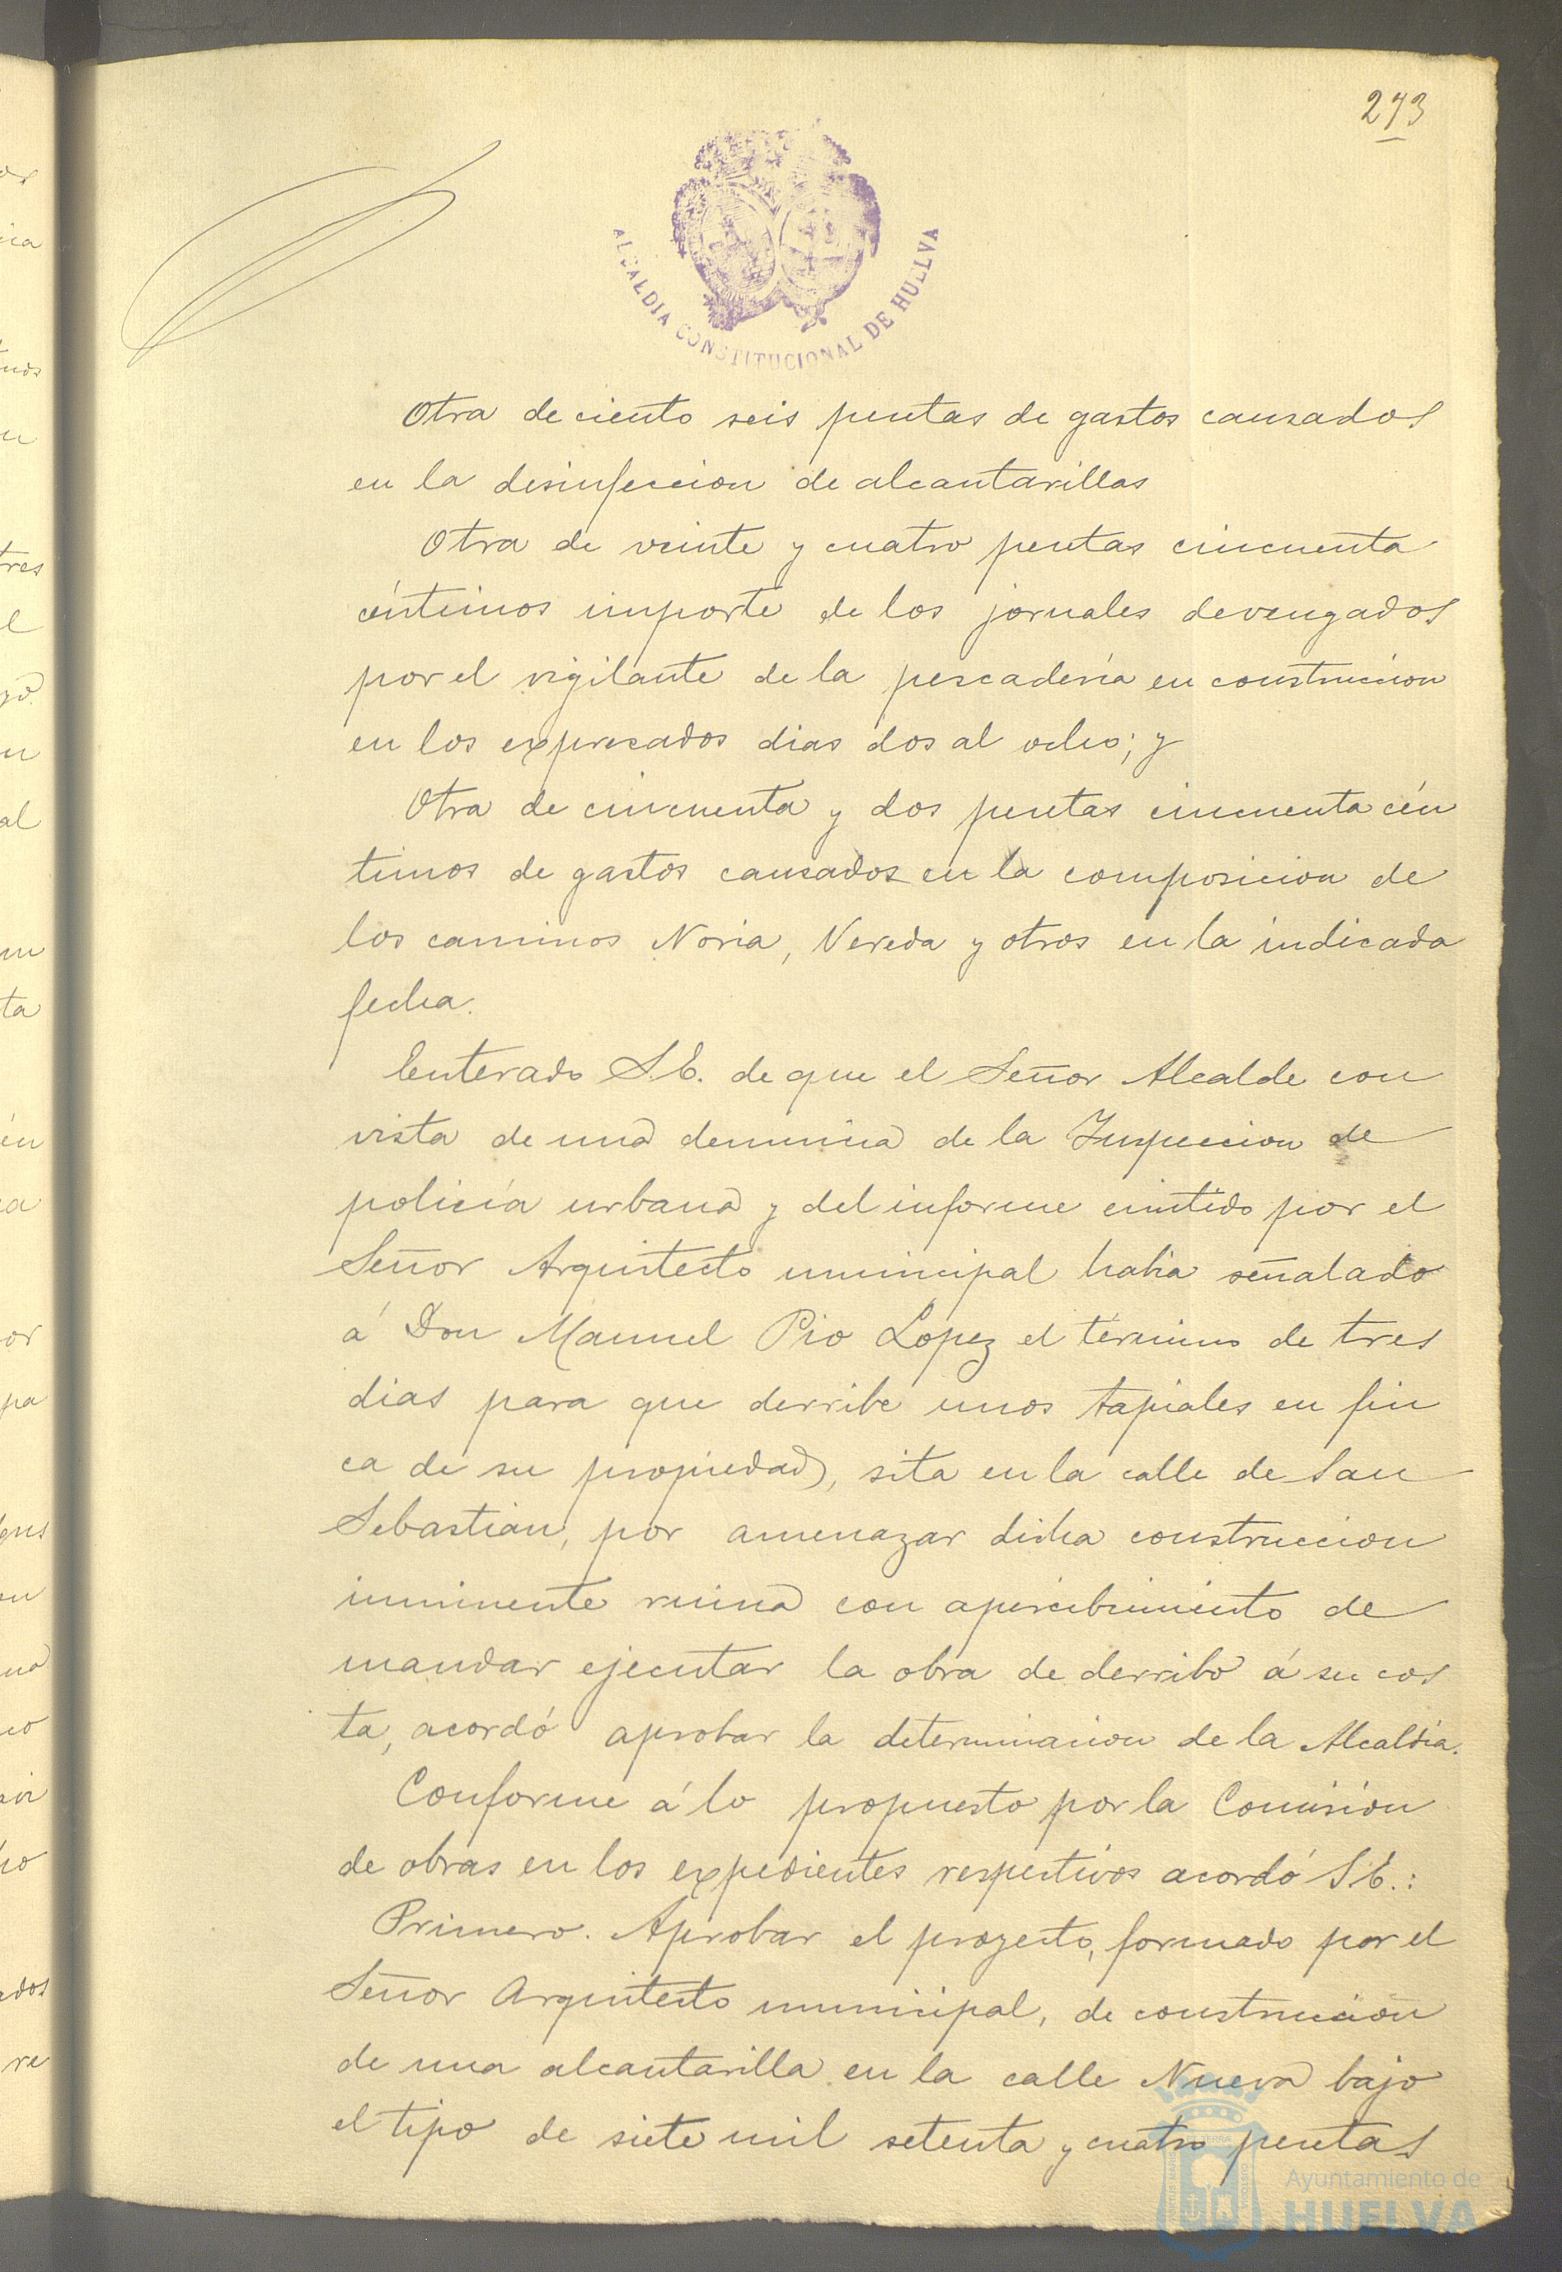 273
ALCALDIA CONSTITUCIONAL DE HUELVA
Otra de ciento seis pesetas de gastos causados
en la desinfeccion de alcantarillas
Otra de veinte y cuatro pesetas cincuenta
céntimos importe de los jornales devengados
por el vigilante de la pescadería en construccion
en los expresados dias dos al ocho; y
Otra de cincuenta y dos pesetas cincuenta cén
timos de gastos causados en la composicion de
los caminos Noria, Vereda y otros en la indicada
fecha.
Enterado S.E. de que el Señor Alcalde con
vista de una denuncia de la Inspeccion de
policía urbana y del informe emitido por el
Señor Arquitecto municipal habia señalado
á Don Manuel Pio Lopez el término de tres
dias para que derribe unos tapiales en fin
ca de su propiedad, sita en la calle de San
Sebastian, por amenazar dicha construccion
inminente ruina con apercibimiento de
mandar ejecutar la obra de derribo á su cos
ta, acordó aprobar la determinacion de la Alcaldía.
Conforme á lo propuesto por la Comision
de obras en los expedientes respectivos acordó S.E.:
Primero. Aprobar el proyecto, formado por el
Señor Arquitecto municipal, de construccion
de una alcantarilla en la calle Nueva bajo
el tipo de siete mil setenta y cuatro pesetas
Ayuntamiento de
HUELVA